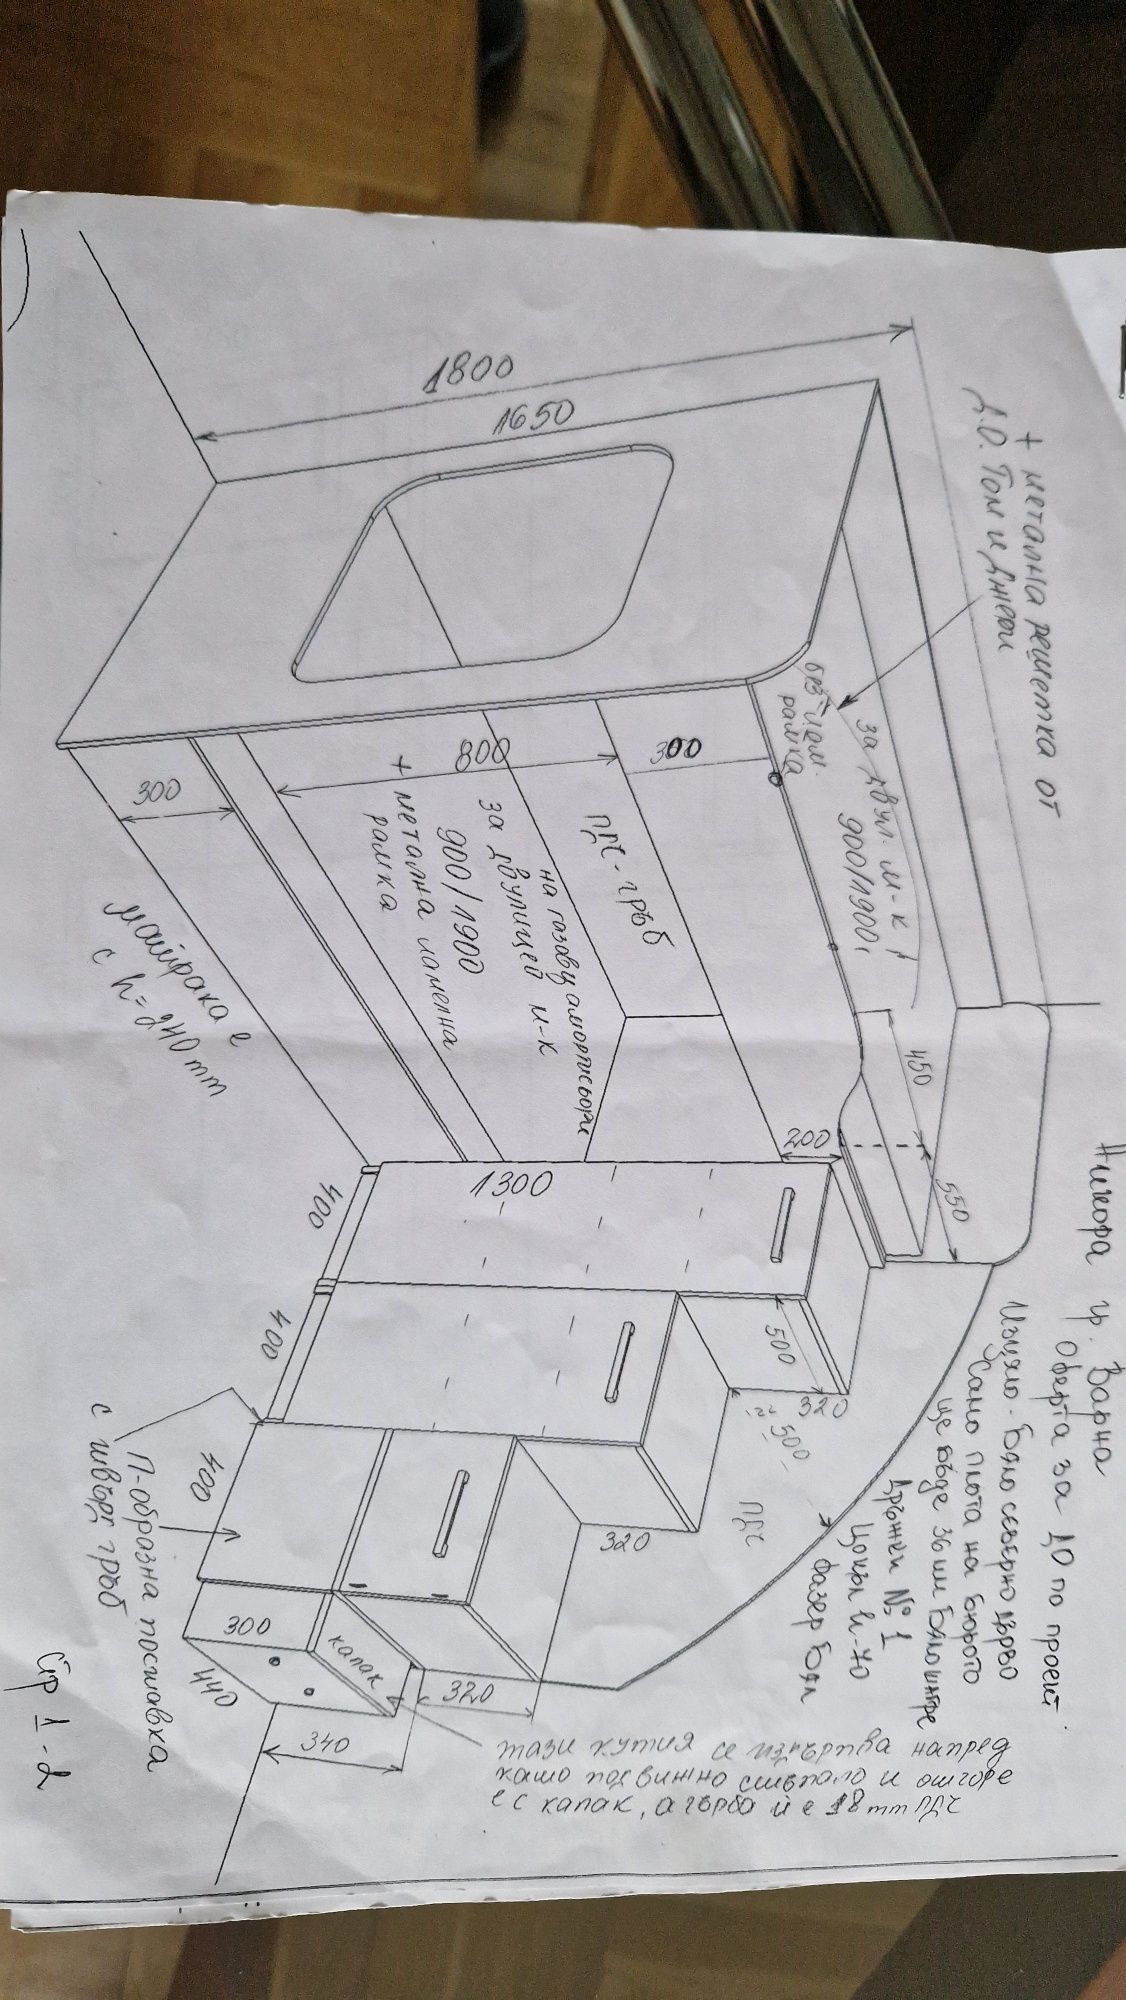 Никора гр. Варна
Оферта за ДО по проект.
Изцяло - Бяло северно дърво
Само плота на бюрото
ще бъде 36 мм
Дръжки № 1
Цокъл h-70
Фазер Бял
ПДЧ
+ метална решетка от
Д.О. Том и Джери
за двул. м-к!
900/1900
без
рамка
1800
1650
300
ПДЧ-гръб
800
на газови амортисьори
за двулицев м-к
900/1900
+ метална ламелна
рамка
300
матрака е
с h=240mm
450
550
200
1300
400
400
400
500
320
500
320
320
300
440
340
капак
П-образна поставка
с твърд гръб
тази кутия се издърпва напред
като подвижно стъпало и отгоре
е с капак, а гърба ѝ е 18mm ПДЧ
Стр 1-2